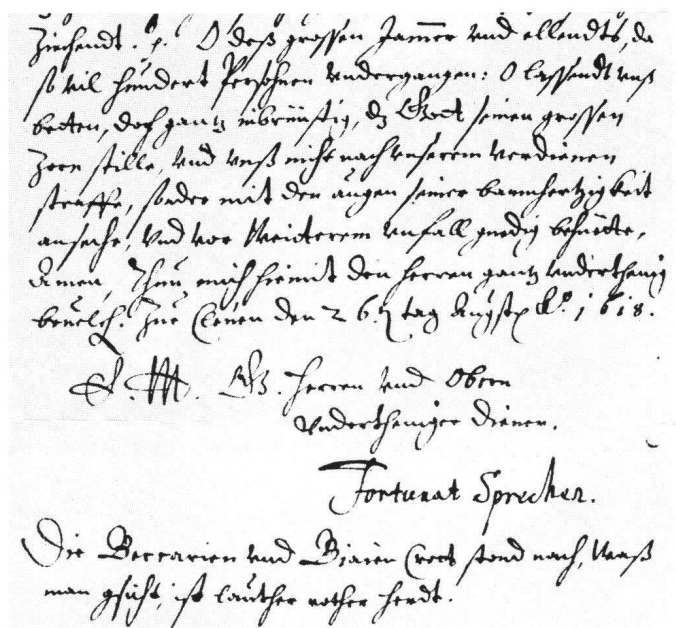 Ziehendt. p. O deß grossen Jammer vnd ellendts, da
so vil hundert Persohnen vndergangen: O lassendt vnß
betten, doch gantz inbrünstig, dz Gott seinen grossen
Zorn stille, vnd vnß nicht nach vnserem verdienen
straffe, sonder mit den augen seiner barmhertzigkeit
ansehe, vnd vor Weiterem vnfall gnedig behüette,
Amen, Thun mich hiemit den herren gantz vnderthenig
beuelch. Zue Cleuen den 26. tag Augst 1618.
E. W. herren vnd Obern
Vndertheniger diener.
Fortunat Sprecher.
Die Beccarien vnd Crott stond noch, Waß
man gsicht, ist lauther rother herdt.